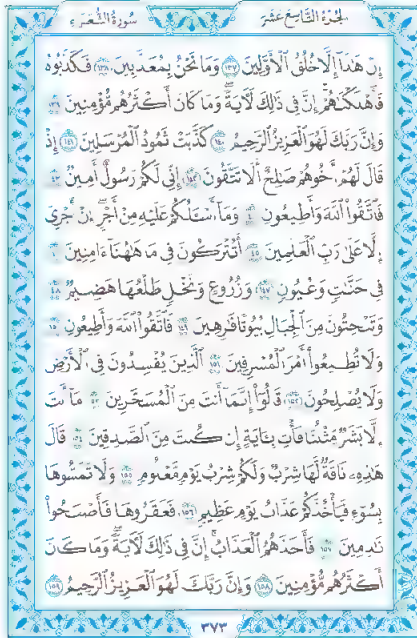 سُورَةُ الشُّعَرَاءِ الجُزءُ التَّاسِعَ عَشَرَ
إِنْ هَٰذَآ إِلَّا خُلُقُ ٱلْأَوَّلِينَ ١٣٧ وَمَا نَحْنُ بِمُعَذَّبِينَ ١٣٨ فَكَذَّبُوهُ
فَأَهْلَكْنَٰهُمْ إِنَّ فِى ذَٰلِكَ لَءَايَةً وَمَا كَانَ أَكْثَرُهُم مُّؤْمِنِينَ ١٣٩
وَإِنَّ رَبَّكَ لَهُوَ ٱلْعَزِيزُ ٱلرَّحِيمُ ١٤٠ كَذَّبَتْ ثَمُودُ ٱلْمُرْسَلِينَ ١٤١ إِذْ
قَالَ لَهُمْ أَخُوهُمْ صَٰلِحٌ أَلَا تَتَّقُونَ ١٤٢ إِنِّى لَكُمْ رَسُولٌ أَمِينٌ
فَٱتَّقُوا۟ ٱللَّهَ وَأَطِيعُونِ وَمَآ أَسْـَٔلُكُمْ عَلَيْهِ مِنْ أَجْرٍ إِنْ أَجْرِىَ
إِلَّا عَلَىٰ رَبِّ ٱلْعَٰلَمِينَ أَتُتْرَكُونَ فِى مَا هَٰهُنَآ ءَامِنِينَ
فِى جَنَّٰتٍ وَعُيُونٍ ١٤٧ وَزُرُوعٍ وَنَخْلٍ طَلْعُهَا هَضِيمٌ
وَتَنْحِتُونَ مِنَ ٱلْجِبَالِ بُيُوتًا فَٰرِهِينَ فَٱتَّقُوا۟ ٱللَّهَ وَأَطِيعُونِ
وَلَا تُطِيعُوٓا۟ أَمْرَ ٱلْمُسْرِفِينَ ١٥١ ٱلَّذِينَ يُفْسِدُونَ فِى ٱلْأَرْضِ
وَلَا يُصْلِحُونَ ١٥٢ قَالُوٓا۟ إِنَّمَآ أَنتَ مِنَ ٱلْمُسَحَّرِينَ مَآ أَنتَ
إِلَّا بَشَرٌ مِّثْلُنَا فَأْتِ بِـَٔايَةٍ إِن كُنتَ مِنَ ٱلصَّٰدِقِينَ قَالَ
هَٰذِهِۦ نَاقَةٌ لَّهَا شِرْبٌ وَلَكُمْ شِرْبُ يَوْمٍ مَّعْلُومٍ ١٥٥ وَلَا تَمَسُّوهَا
بِسُوٓءٍ فَيَأْخُذَكُمْ عَذَابُ يَوْمٍ عَظِيمٍ ١٥٦ فَعَقَرُوهَا فَأَصْبَحُوا۟
نَٰدِمِينَ ١٥٧ فَأَخَذَهُمُ ٱلْعَذَابُ إِنَّ فِى ذَٰلِكَ لَءَايَةً وَمَا كَانَ
أَكْثَرُهُم مُّؤْمِنِينَ ١٥٨ وَإِنَّ رَبَّكَ لَهُوَ ٱلْعَزِيزُ ٱلرَّحِيمُ ١٥٩
٣٧٣